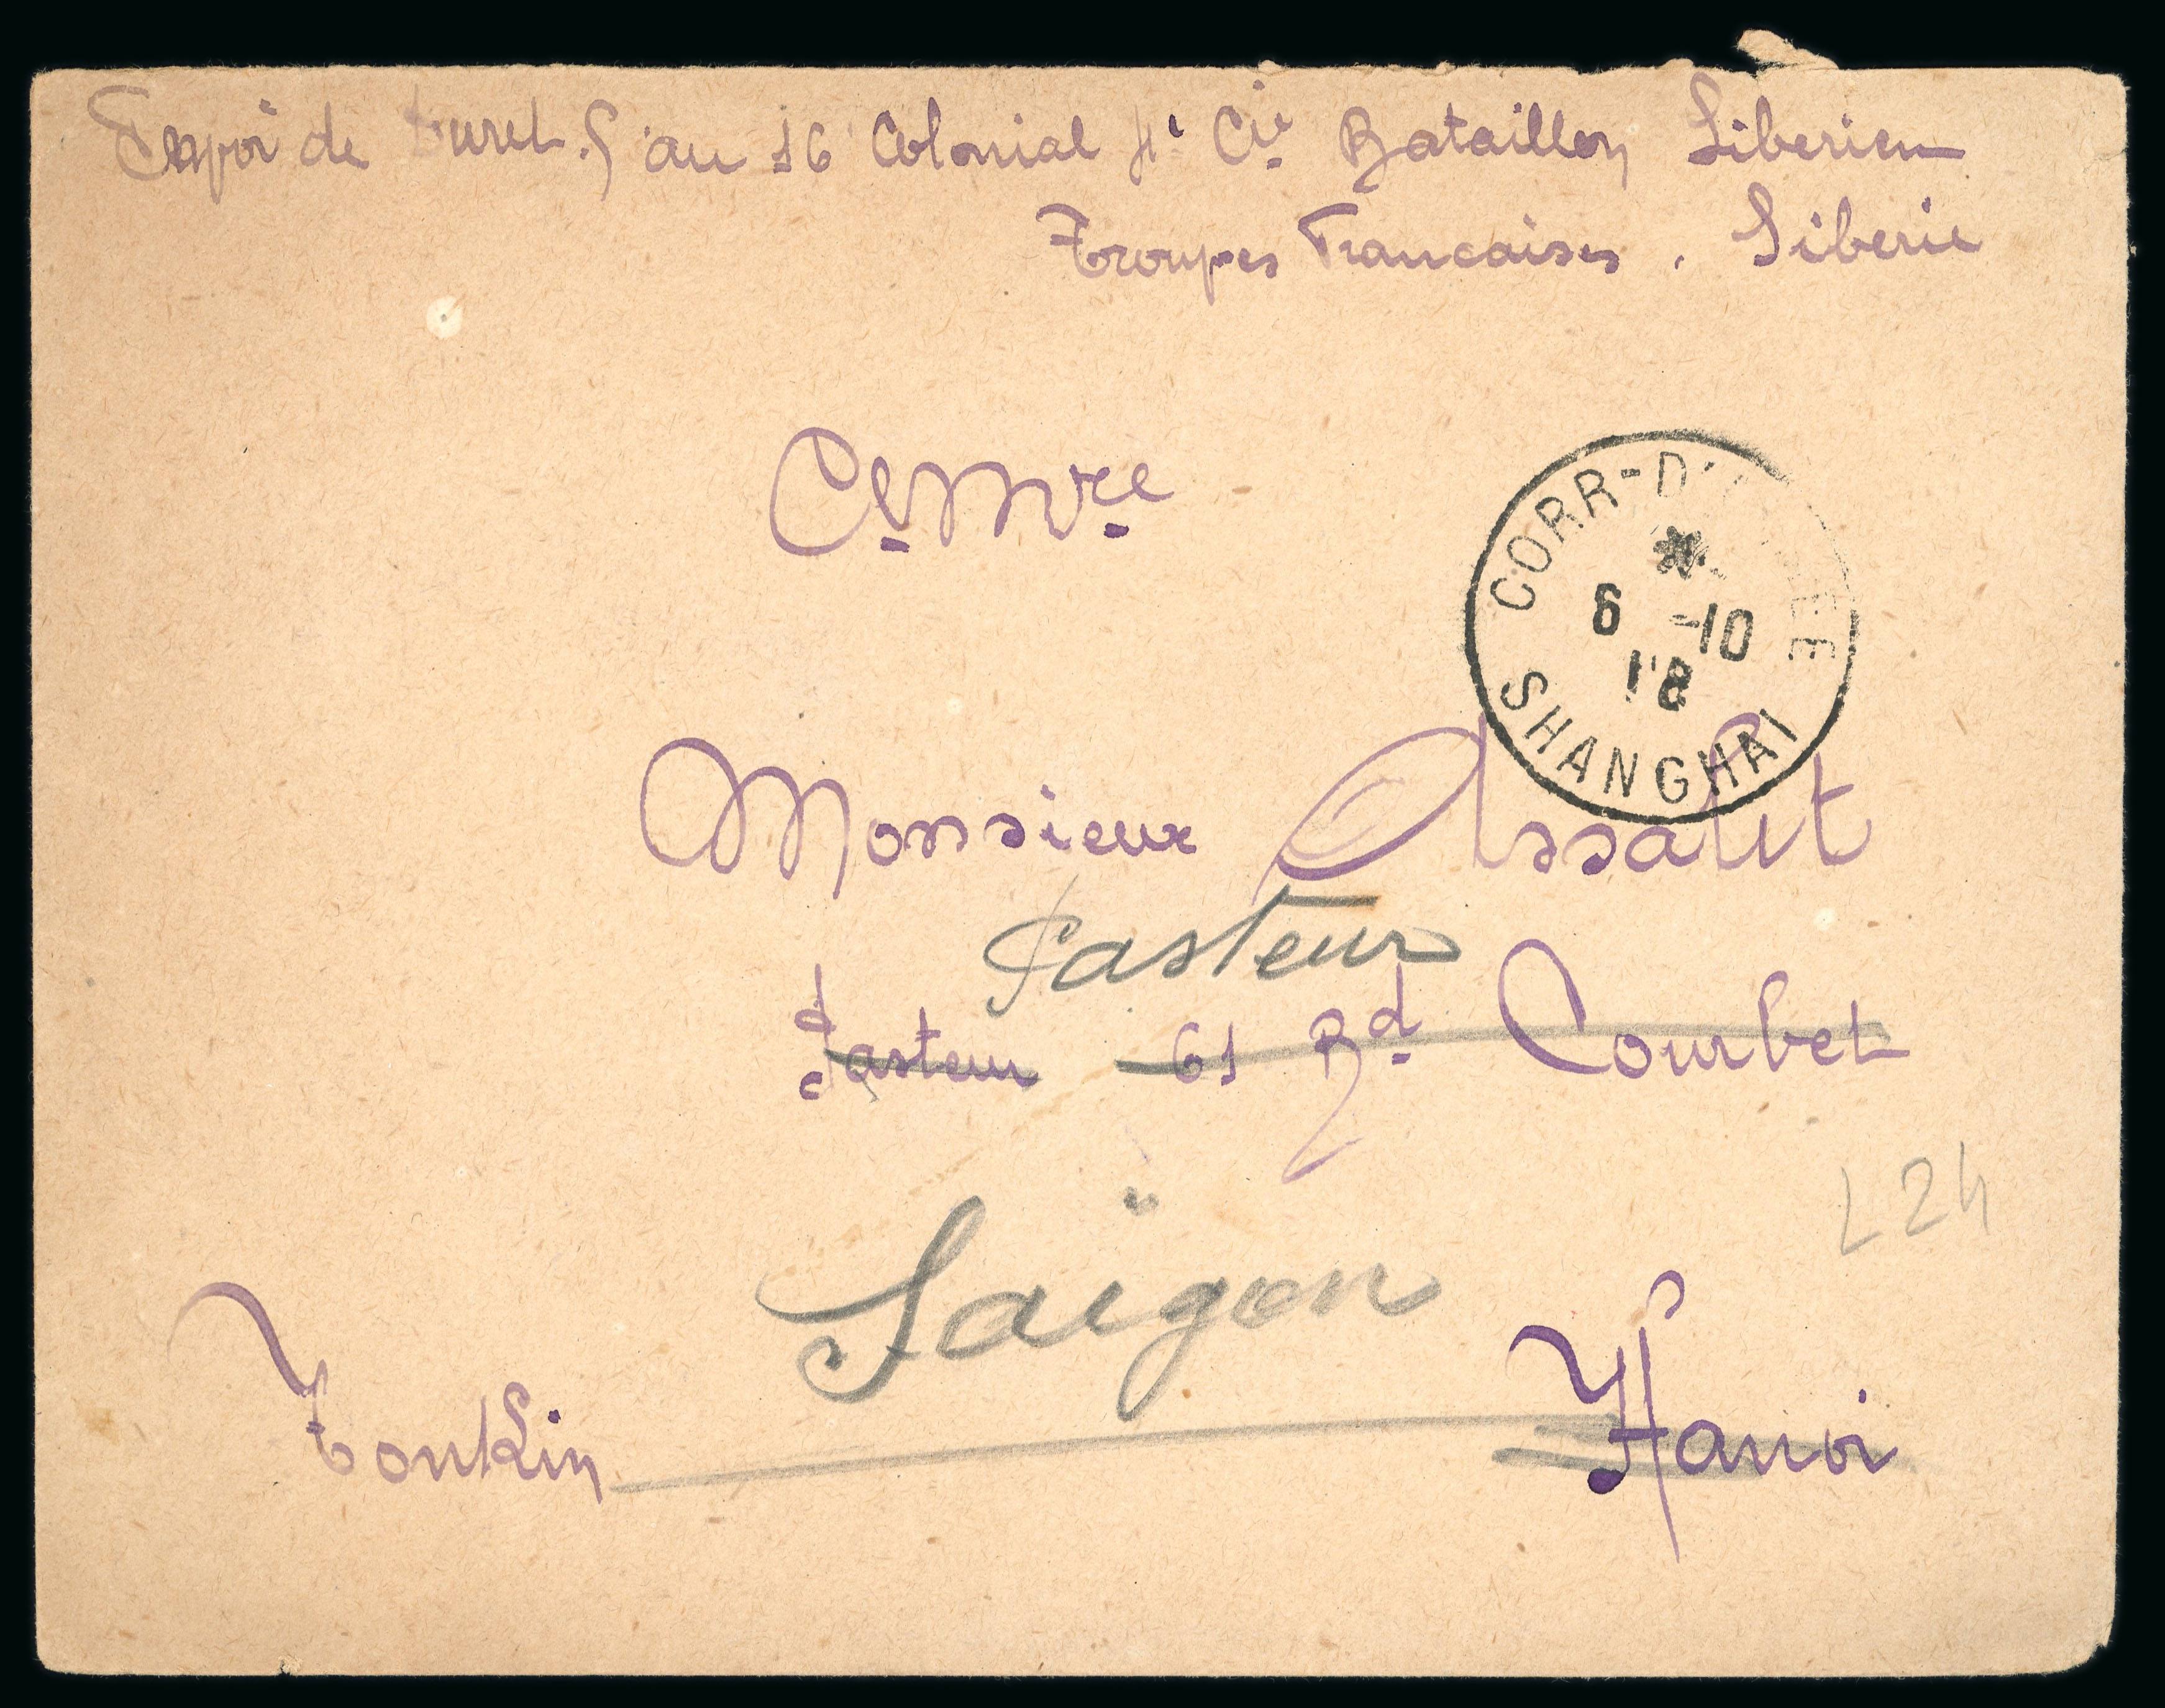 Envoi de Buret. S au 16 Colonial 4e Cie Bataillon Siberien
Troupes Francaises. Siberie
Ct Mre
CORR-D'
6 -10
18
SHANGHAI
Monsieur Assalit
Pasteur
Pasteur 61 Bd Courbet
L24
Saïgon
Tonkin Hanoi